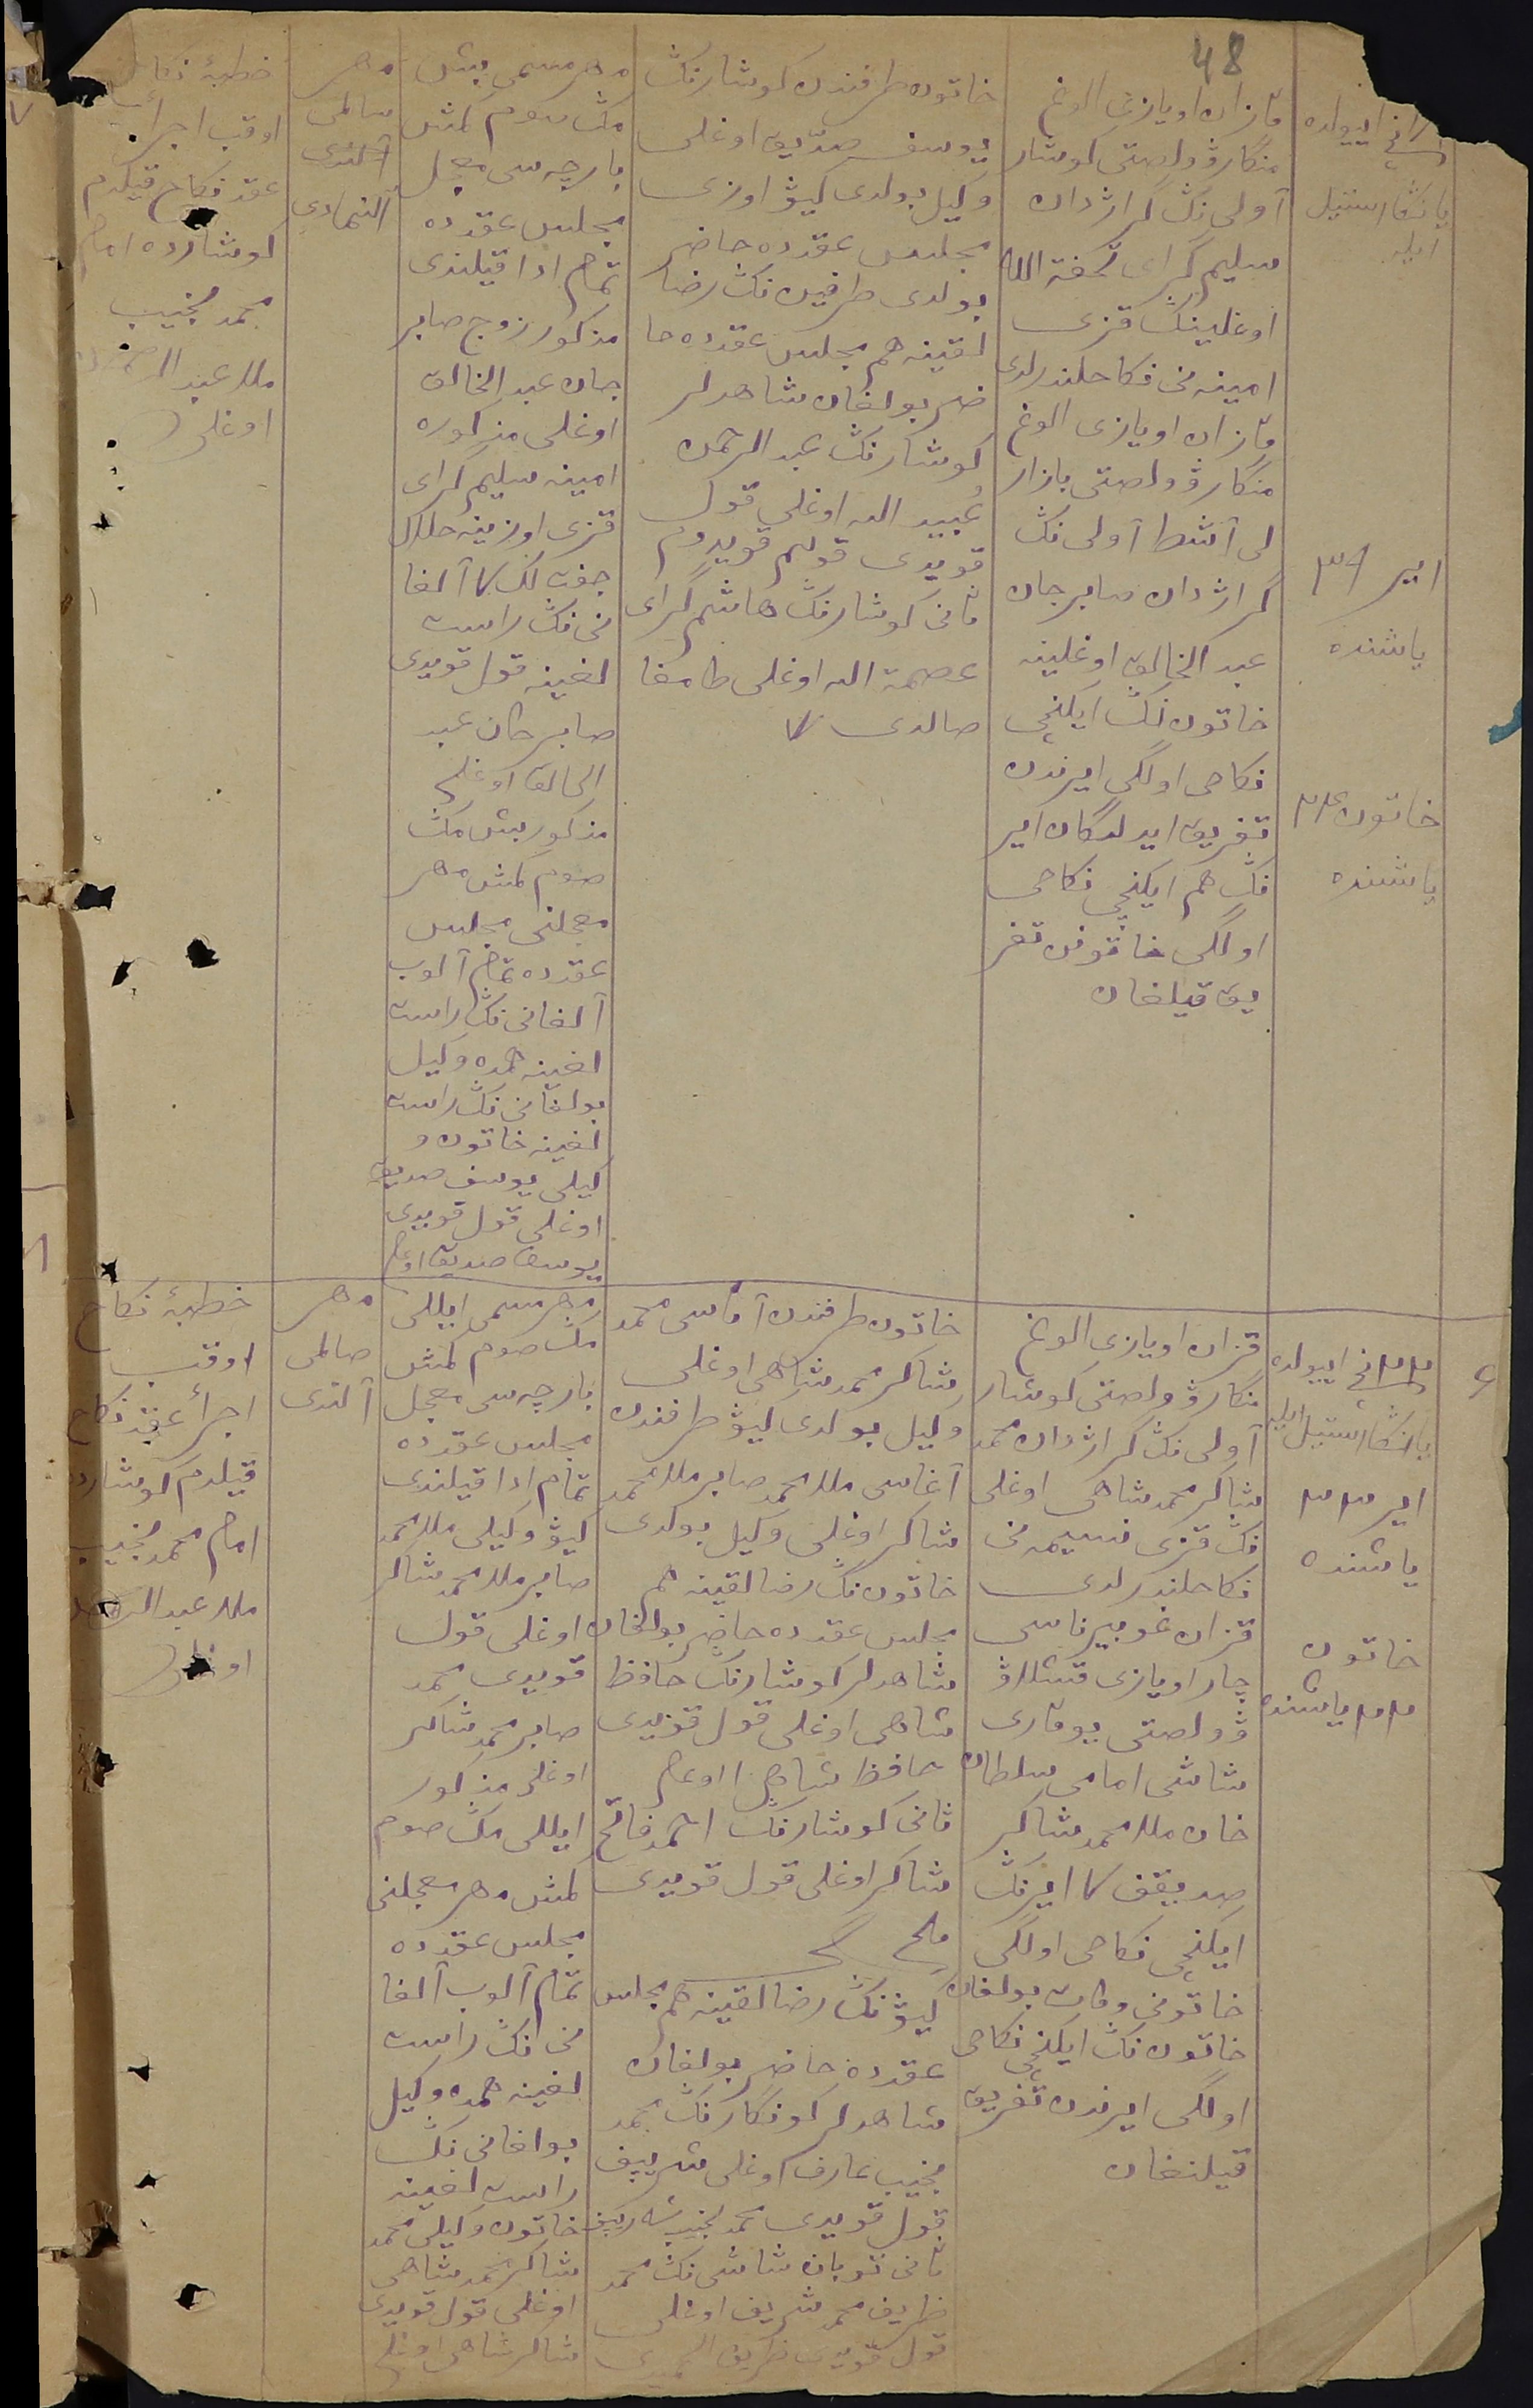 48
ایيولده
یاڭا ستیل
ایله
ایر ۳۹
یاشنده
خاتون ۲۴
یاشنده
قازان اویازی الوغ
منگارۋ ولصتی کوشار
آولی نڭ گراژدان
سلیم گرای تحفة الله
اوغلینڭ قزی
امینه نی نکاحلندرلدی
قازان اویازی الوغ
منگارۋ ولصتی بازار
لی آشط آولی نڭ
گراژدان صابرجان
عبد الخالق اوغلینه
خاتون نڭ ایکنچی
نکاحی اولگی ایرندن
تفریق ایدلگان ایر
نڭ هم ایکنچی نکاحی
اولگی خاتونن تفر
یق قیلغان
خاتون طرفندن کوشارنڭ
یوسف صدّیق اوغلی
وکیل بولدی کیۋ اوزی
مجلس عقدده حاضر
بولدی طرفین نڭ رضا
لقینه هم مجلس عقدده حا
ضر بولغان شاهدلر
کوشارنڭ عبد الرحمن
عُبید الله اوغلی قول
قویدی قولم قویدم
ثانی کوشارنڭ هاشم گرای
عصمة الله اوغلی طامغا
صالدی
مهر مسمی بیش
مڭ صوم کمش
بارچه سی معجل
مجلس عقدده
تمام ادا قیلندی
مذکور زوج صابر
جان عبد الخالق
اوغلی مذکوره
امینه سلیم گرای
قزی اوزینه حلال
جفت لک کا آلغا
نی نڭ راست
لغینه قول قویدی
صابر جان عبد
الخالق اوغلی
مذکور بیش مڭ
صوم کمش مهر
معجلنی مجلس
عقدده تمام آلوب
آلغانی نڭ راست
لغینه همده وکیل
بولغانی نڭ راست
لغینه خاتون و
کیلی یوسف صدیق
اوغلی قول قویدی
یوسف صدیق اوغلی
مهر
سالمی
آلندی
آلنمادی
خطبۀ نکاح
اوقب اجرأ
عقد نکاح قیلدم
کوشارده امام
محمد نجیب
ملا عبد
اوغلی
ایيولده
یاڭا ستیل ایله
ایر ۳۳
یاشنده
خاتون
۲۲ یاشنده
قزان اویازی الوغ
منگارۋ ولصتی کوشار
آولی نڭ گراژدان محمد
شاکر محمد شاهی اوغلی
نڭ قزی نسیمه نی
نکاحلندرلدی
قزان غوبیرناسی
چار اویازی قشلاۋ
ۋولصتی یوقاری
شاشی امامی سلطان
خان ملا محمد شاکر
صدیقف کا ایرنڭ
ایکنچی نکاحی اولگی
خاتونی وفات بولغان
خاتون نڭ ایکنچی نکاحی
اولگی ایرندن تفریق
قیلنغان
خاتون طرفندن آتاسی محمد
شاکر محمد شاهی اوغلی
وکیل بولدی کیۋ طرفندن
آغاسی ملا محمد صابر ملا محمد
شاکر اوغلی وکیل بولدی
خاتون نڭ رضالقینه هم
مجلس عقدده حاضر بولغان
شاهدلر کوشارنڭ حافظ
شاهی اوغلی قول قویدی
حافظ شاهی اوغلی
ثانی کوشارنڭ احمد فاتح
شاکر اوغلی قول قویدی
کیۋ نڭ رضالقینه هم مجلس
عقدده حاضر بولغان
شاهدلر نڭ محمد
نجیب عارف اوغلی شریپف
قول قویدی محمد نجیب شریپف
ثانی توبان شاشی نڭ محمد
ظریف محمد شریف اوغلی
قول قویدی
مهر مسمی ایللی
مڭ صوم کمش
بارچه سی معجل
مجلس عقدده
تمام ادا قیلندی
کیۋ وکیلی ملا محمد
صابر ملا محمد شاکر
اوغلی قول
قویدی محمد
صابر محمد شاکر
اوغلی مذکور
ایللی مڭ صوم
کمش مهر معجلنی
مجلس عقدده
تمام آلوب آلغا
نی نڭ راست
لغینه همده وکیل
بولغانی نڭ
راست لغینه
خاتون وکیلی محمد
شاکر محمد شاهی
اوغلی قول قویدی
شاکر شاهی اوغلی
مهر
صالمی
آلندی
خطبۀ نکاح
اوقب
اجرأ عقد نکاح
قیلدم کوشارده
امام محمد نجیب
ملا عبد
اوغلی